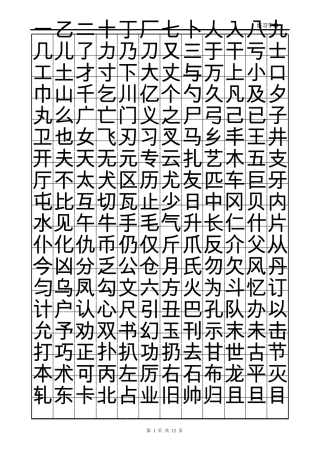 一乙二十丁厂七卜人入八九
几儿了力乃刀又三于干亏士
工土才寸下大丈与万上小口
巾山千乞川亿个勺久凡及夕
丸么广亡门义之尸弓己已子
卫也女飞刃习叉马乡丰王井
开夫天无元专云扎艺木五支
厅不太犬区历尤友匹车巨牙
屯比互切瓦止少日中冈贝内
水见午牛手毛气升长仁什片
仆化仇币仍仅斤爪反介父从
今凶分乏公仓月氏勿欠风丹
匀乌凤勾文六方火为斗忆订
计户认心尺引丑巴孔队办以
允予劝双书幻玉刊示末未击
打巧正扑扒功扔去甘世古节
本术可丙左厉右石布龙平灭
轧东卡北占业旧帅归且旦目
第 1 页 共 12 页